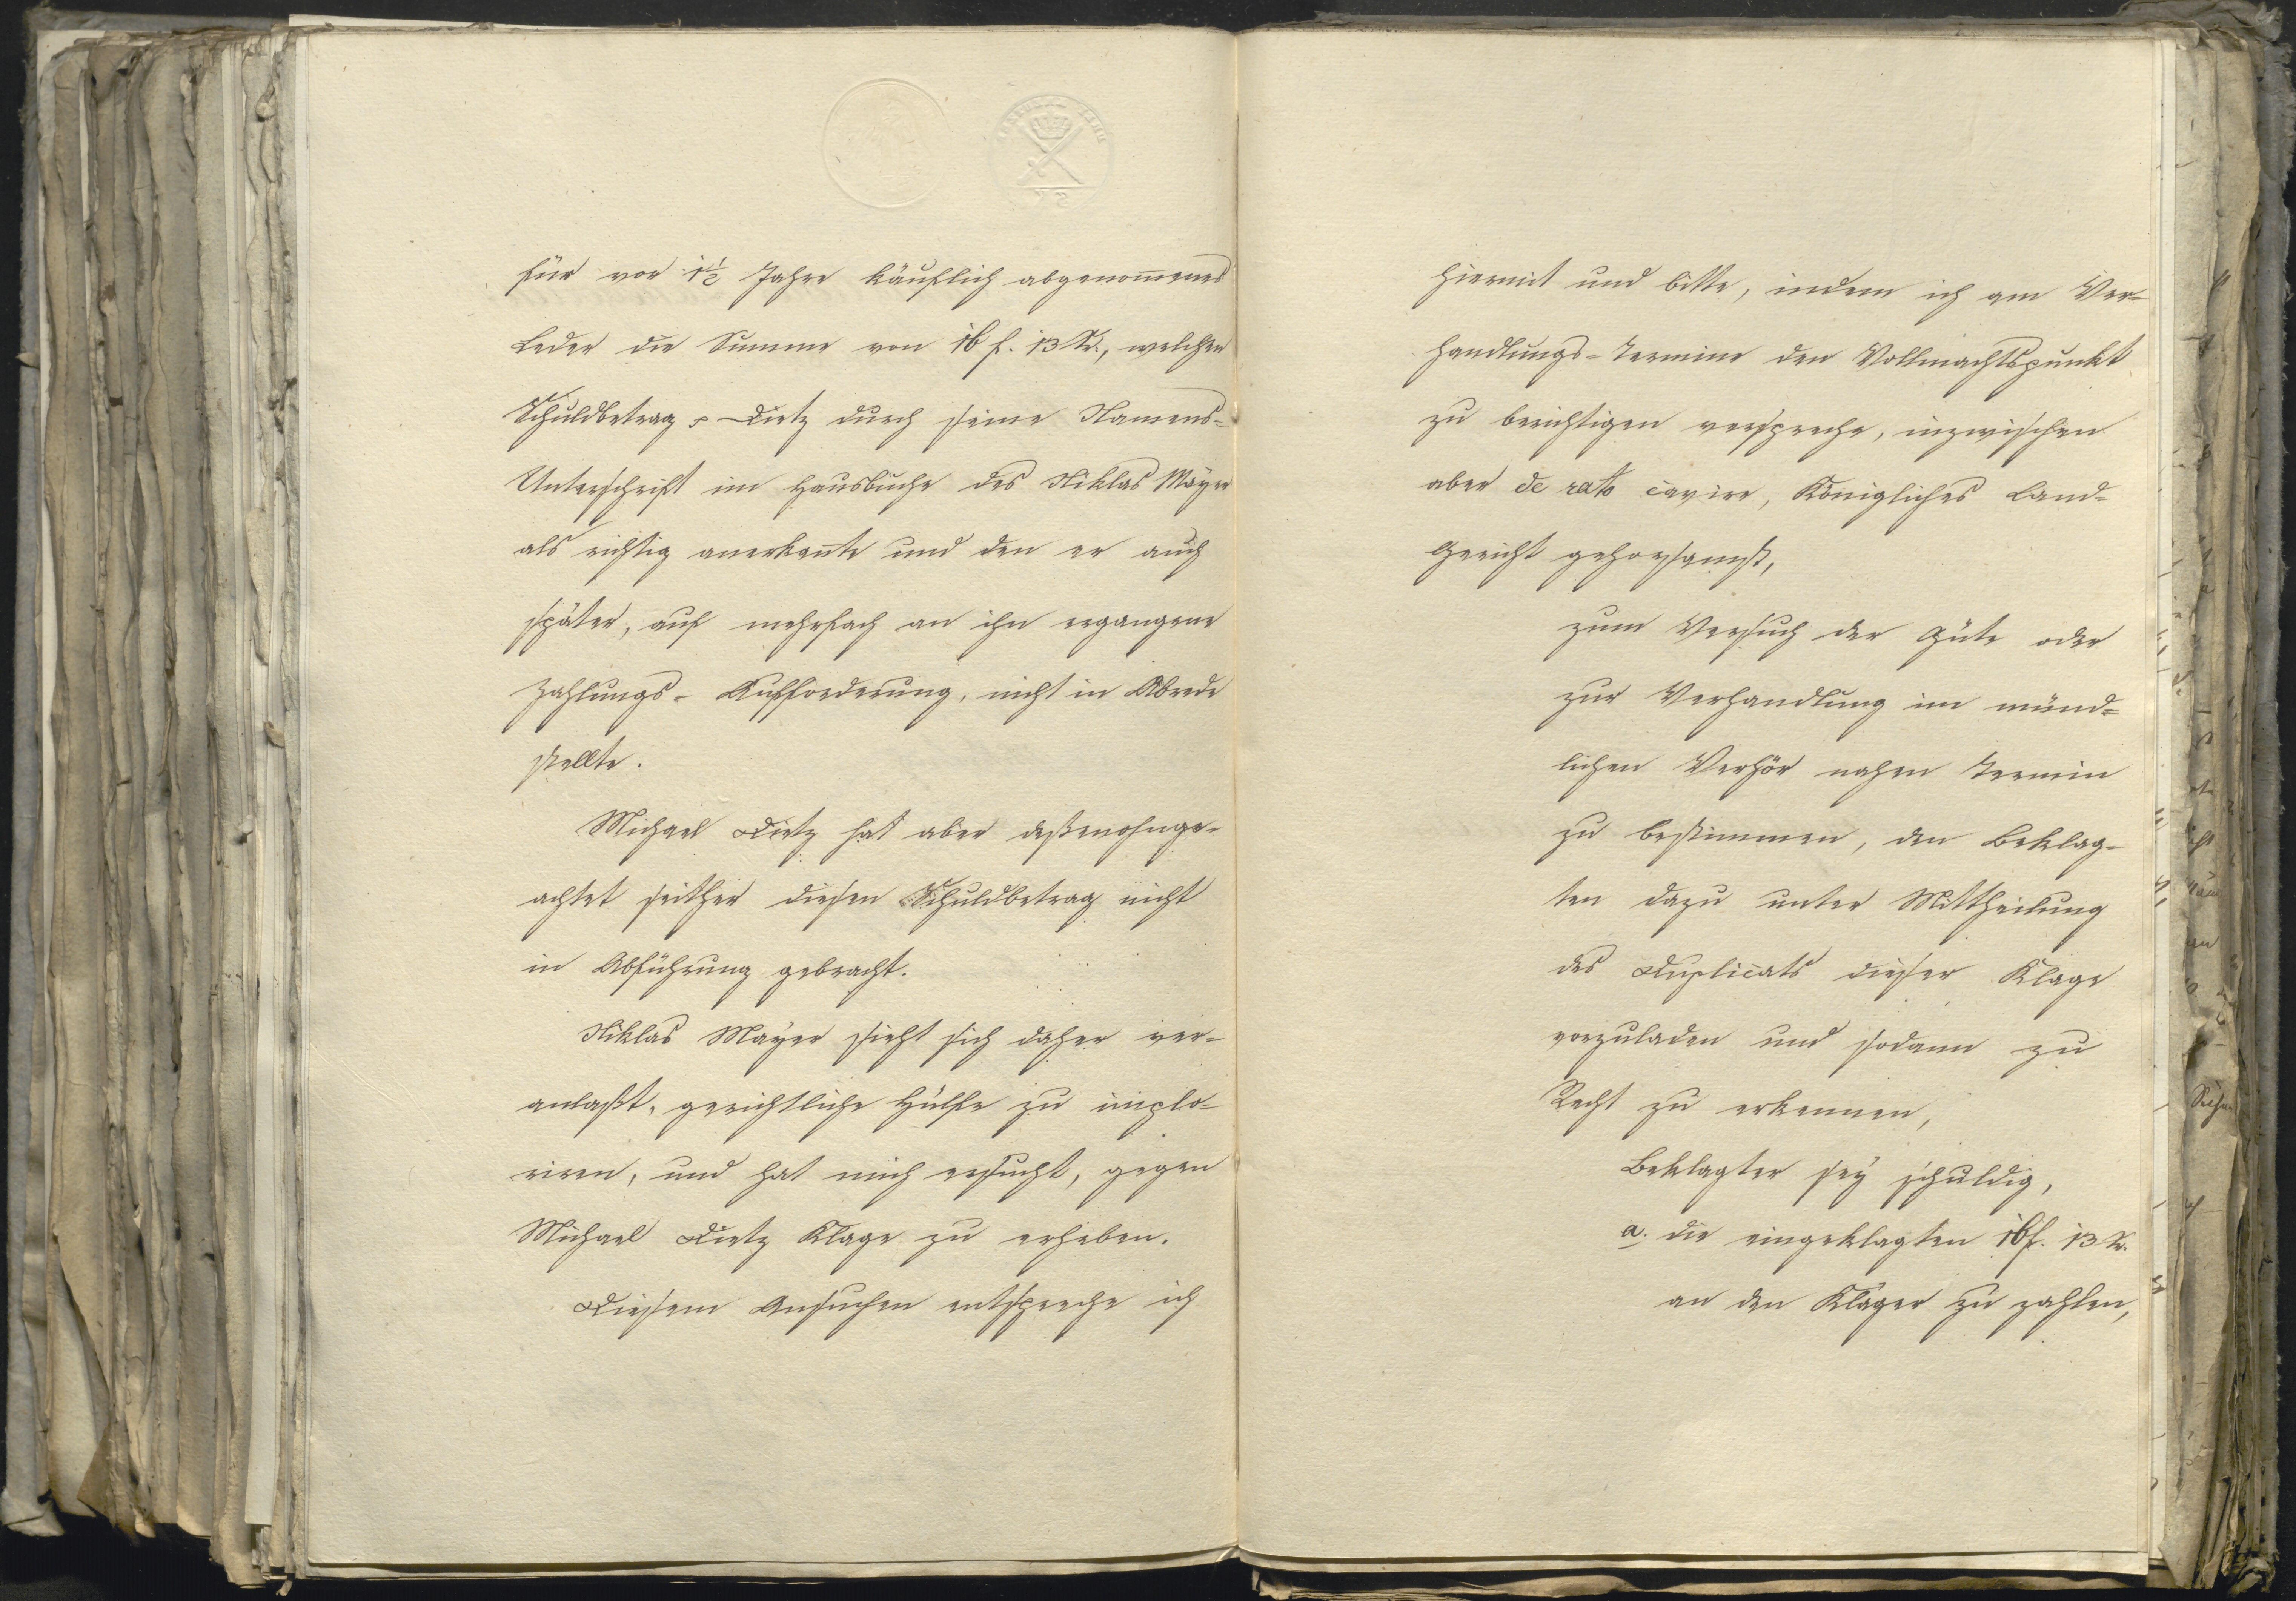 für vor 1½ Jahre käuflich abgenom̄enes
Leder die Summe von 16 f. 13 Kr., welchen
Schuldbetrag Dietz durch seine Namens-
Unterschrift im Hausbuche des Niklas Mayer
als richtig anerkan̄te und den er auch
später, auf mehrfach an ihn ergangene
Zahlungs-Aufforderung, nicht in Abrede
stellte.
Michael Dietz hat aber deßenohnge-
achtet seither diesen Schuldbetrag nicht
in Abführung gebracht.
Niklas Mayer sieht sich daher ver-
anlaßt, gerichtliche Hülfe zu implo-
riren, und hat mich ersucht, gegen
Michael Dietz Klage zu erheben.
Diesem Ansuchen entspreche ich
hiermit und bitte, indem ich am Ver-
handlungs-Termine den Vollmachtspunkt
zu berichtigen verspreche, inzwischen
aber de rato cavire, Königliches Land-
Gericht gehorsamst,
zum Versuch der Güte oder
zur Verhandlung im münd-
lichen Verhör nahen Termin
zu bestimmen, den Beklag-
ten dazu unter Mittheilung
des Duplicats dieser Klage
vorzuladen und sodann zu
Recht zu erkennen,
Beklagter sey schuldig,
a. die eingeklagten 16 f. 13 Kr.
an den Kläger zu zahlen,